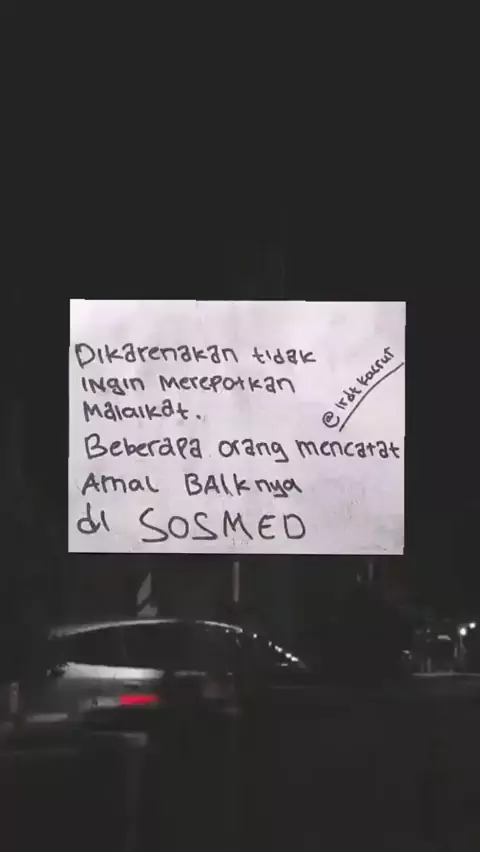 Dikarenakan tidak
ingin merepotkan
Malaikat.
Beberapa orang mencatat
Amal BAIknya
di SOSMED